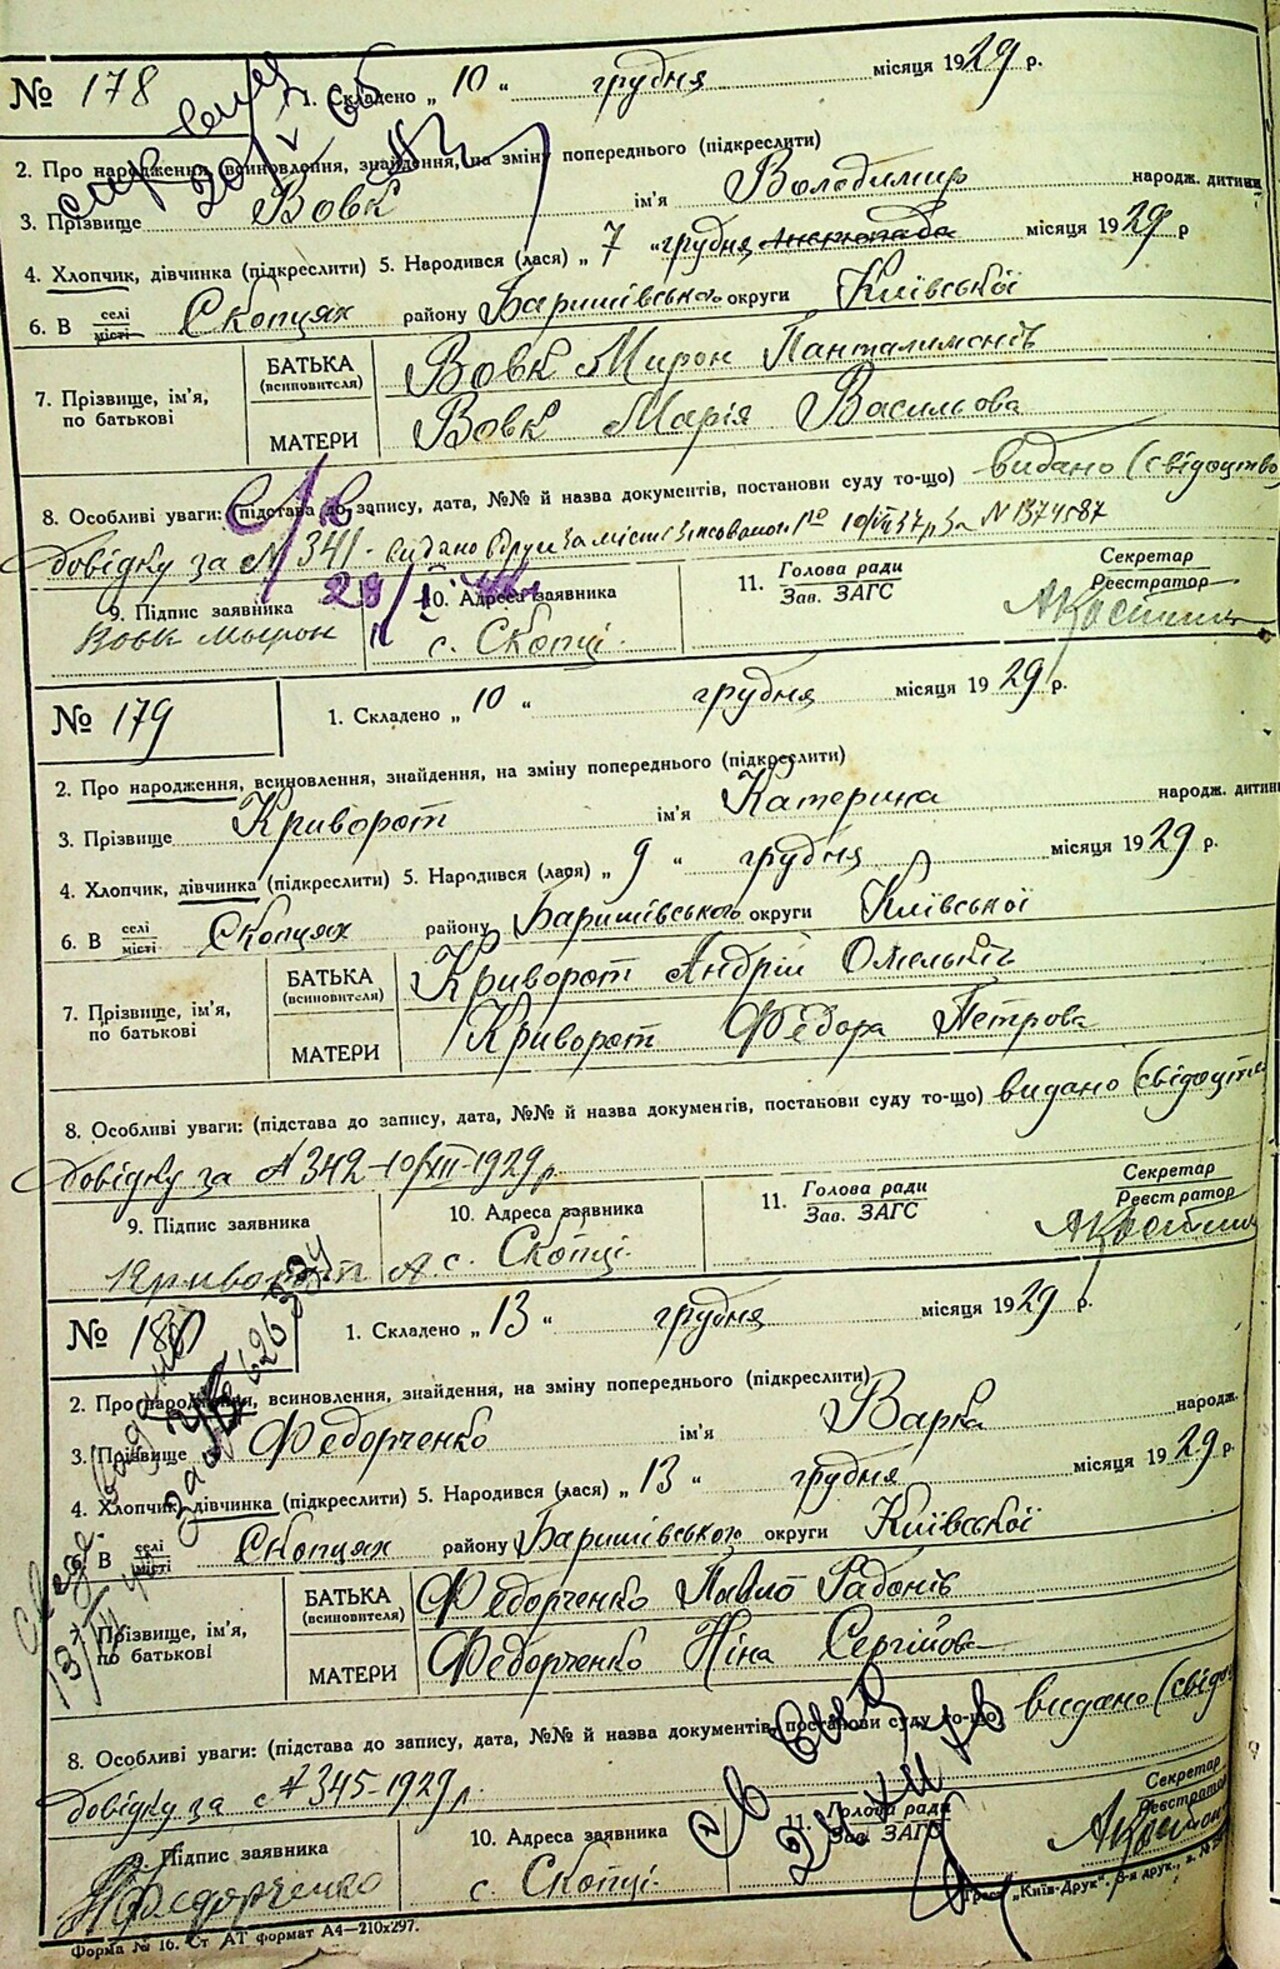 № 178 1. Складено „ 10 “ грудня місяця 1929 р.
2. Про народження, всиновлення, знайдення, на зміну попереднього (підкреслити)
3. Прізвище Вовк ім'я Володимир народж. дитини
4. Хлопчик, дівчинка (підкреслити) 5. Народився (лася) „ 7 “ грудня листопада місяця 1929 р
6. В селі/місті Скопцях району Баришівського округи Київської
7. Прізвище, ім'я, по батькові
БАТЬКА (всиновителя) Вовк Мирон Панталимонів
МАТЕРИ Вовк Марія Васильова
8. Особливі уваги: (підстава до запису, дата, №№ й назва документів, постанови суду то-що) видано (свідоцтво
довідку за № 341. N 1374587
9. Підпис заявника 10. Адреса заявника 11. Голова ради / Зав. ЗАГС Секретар / Реєстратор
Вовк Мырон с. Скопці.
№ 179 1. Складено „ 10 “ грудня місяця 1929 р.
2. Про народження, всиновлення, знайдення, на зміну попереднього (підкреслити)
3. Прізвище Криворот ім'я Катерина народж. дитини
4. Хлопчик, дівчинка (підкреслити) 5. Народився (лася) „ 9 “ грудня місяця 1929 р.
6. В селі/місті Скопцях району Баришівського округи Київської
7. Прізвище, ім'я, по батькові
БАТЬКА (всиновителя) Криворот Андрій Омельків
МАТЕРИ Криворот Федора Петрова
8. Особливі уваги: (підстава до запису, дата, №№ й назва документів, постанови суду то-що) видано (свідоцтво
довідку за № 342-10/XII-1929 р.
9. Підпис заявника 10. Адреса заявника 11. Голова ради / Зав. ЗАГС Секретар / Реєстратор
Криворот А. с. Скопці.
№ 180 1. Складено „ 13 “ грудня місяця 1929 р.
2. Про народження, всиновлення, знайдення, на зміну попереднього (підкреслити)
3. Прізвище Федорченко ім'я Варка народж.
4. Хлопчик, дівчинка (підкреслити) 5. Народився (лася) „ 13 “ грудня місяця 1929 р.
6. В селі/місті Скопцях району Баришівського округи Київської
7. Прізвище, ім'я, по батькові
БАТЬКА (всиновителя) Федорченко Павло Радонів
МАТЕРИ Федорченко Ніна Сергійова
8. Особливі уваги: (підстава до запису, дата, №№ й назва документів, постанови суду то-що) видано (свідо
довідку за № 345-1929 р.
9. Підпис заявника 10. Адреса заявника 11. Голова ради / Зав. ЗАГС Секретар / Реєстратор
Федорченко с. Скопці.
Форма № 16. Ст АТ формат А4—210x297. Трест „Київ-Друк“. 3-я друк.,